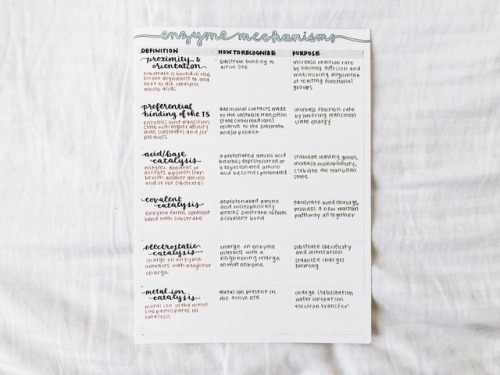 enzyme mechanisms
DEFINITION HOW TO RECOGNIZE PURPOSE
proximity &
orientation
substrate is bound in the
proper alignment to and
next to the catalytic
amino acids
substrate binding to
active site
increase reaction rate
by limiting diffusion and
maximizing alignment
of reacting functional
groups
preferential
binding of the TS
enzymes bind transition
state with higher affinity
than substrates and/or
products
additional contacts made
to the unstable transition
state (intermediates)
relative to the substrate
and/or product
increase reaction rate
by lowering transition
state energy
acid/base
catalysis
enzyme donates or
accepts a proton (can
be with another amino
acid or w/ substrate)
a protonated amino acid
becomes deprotonated or
a deprotonated amino
acid becomes protonated
stabilize leaving groups,
increase nucleophilicity,
stabilize the transition
state
covalent
catalysis
enzyme forms covalent
bond with substrate
deprotonated amino
acid nucleophilically
attacks substrate to form
a covalent bond
facilitate bond cleavage,
provides a new reaction
pathway all together
electrostatic
catalysis
charge on enzyme
interacts with a neighbor
charge
charge on enzyme
interacts with a
neighboring charge
on that enzyme
substrate specificity
and orientation
stabilize charges
forming
metal ion
catalysis
metal ion in the active
site participates in
catalysis
metal ion present in
the active site
charge stabilization
water ionization
electron transfer